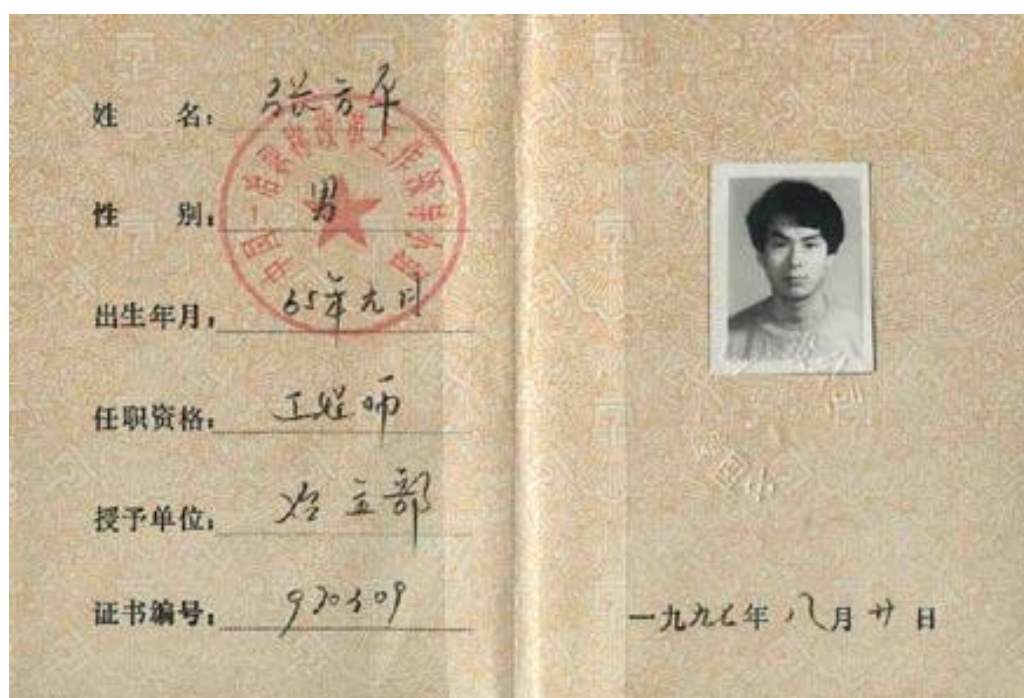 姓名：张方平
性别：男
出生年月：65年元月
任职资格：工程师
授予单位：冶立部
证书编号：970509
一九九七年八月廿日